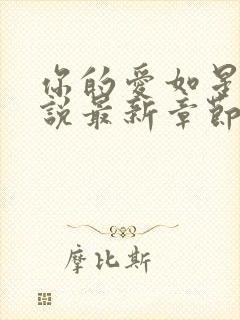 你的愛如星
說最新章節
摩比斯